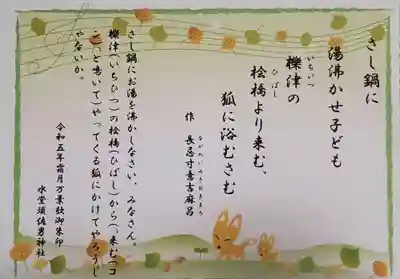 さし鍋に
湯沸かせ子ども
櫟津の
いちいつ
桧橋より来む、
ひばし
狐に浴むさむ
作 長忌寸意吉麻呂
ながのいみきおきまろ
さし鍋にお湯を沸かしなさい、みなさん。
櫟津(いちひつ)の桧橋(ひばし)から(「来む、コ
ン」と鳴いて)やってくる狐にかけてやろうじ
ゃないか。
令和五年霜月万葉歌御朱印
水堂須佐男神社